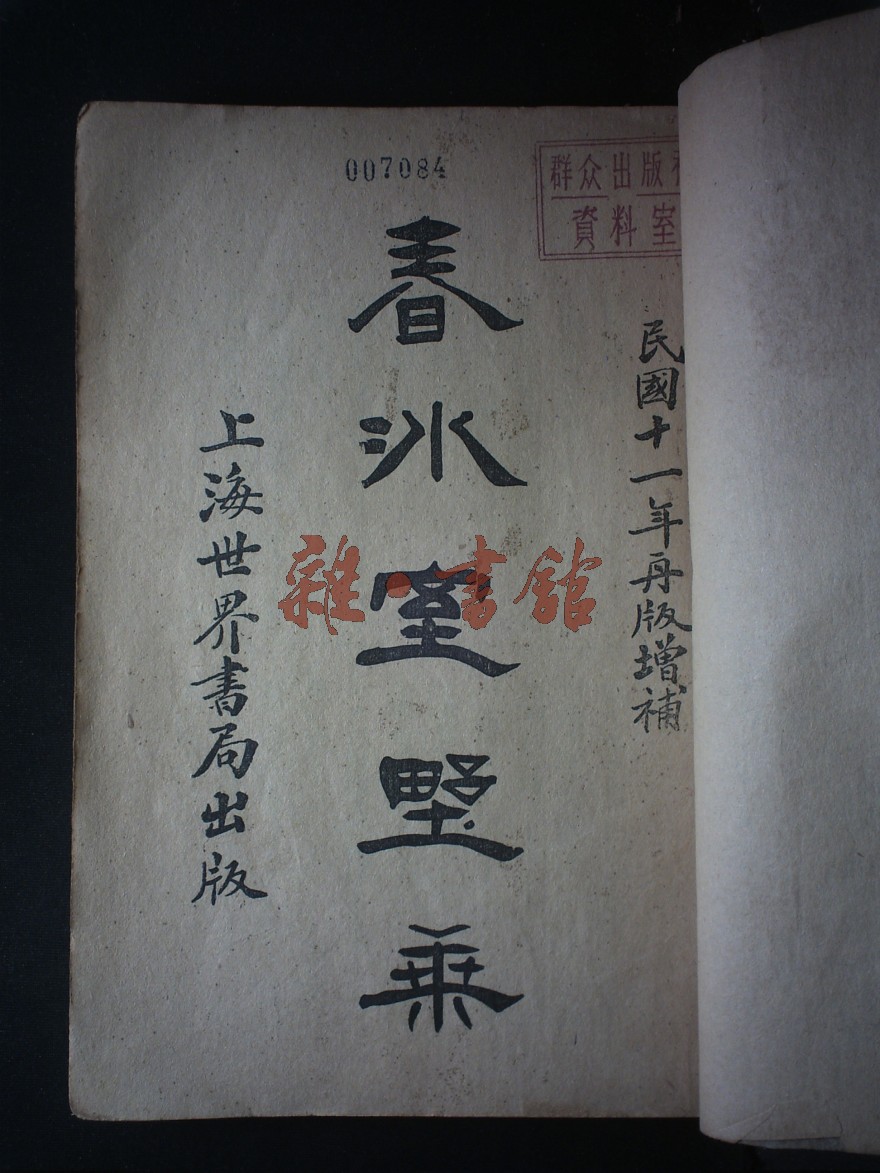 007084
群众出版
資料室
民國十一年再版增補
春冰室野乘
上海世界書局出版
雜·書館